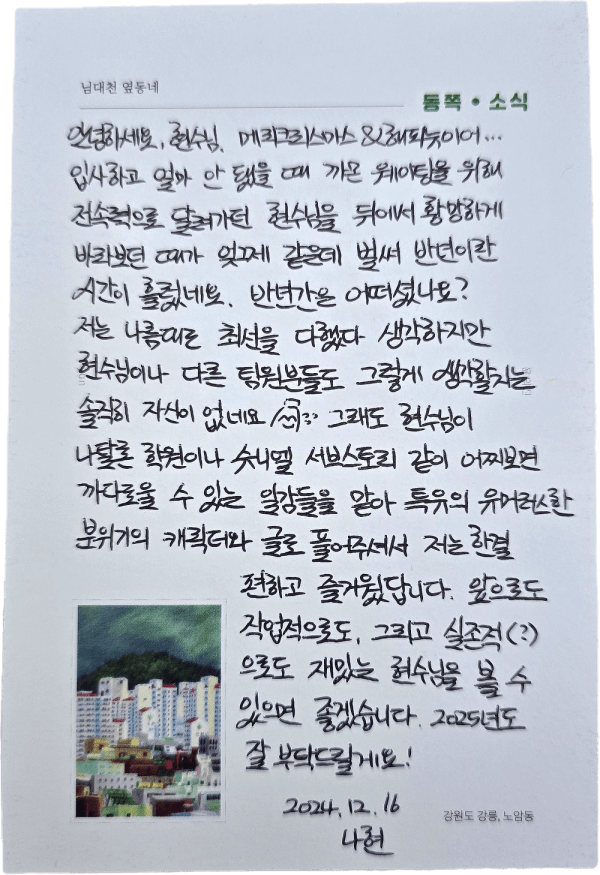 님대천 옆동네
동쪽 • 소식
안녕하세요, 현수님. 메리크리스마스 & 해피뉴이어...
입사하고 얼마 안 됐을 때 까몬 웨이팅을 위해
전속력으로 달려가던 현수님을 뒤에서 황망하게
바라보던 때가 엊그제 같은데 벌써 반년이란
시간이 흘렀네요. 반년간은 어떠셨나요?
저는 나름대로 최선을 다했다 생각하지만
현수님이나 다른 팀원분들도 그렇게 생각할지는
솔직히 자신이 없네요 그래도 현수님이
나달론 학원이나 숏니엘 서브스토리 같이 어찌보면
까다로울 수 있는 일감들을 맡아 특유의 유머러스한
분위기의 캐릭터와 글로 풀어주셔서 저는 한결
편하고 즐거웠답니다. 앞으로도
작업적으로도, 그리고 실존적(?)
으로도 재밌는 현수님을 볼 수
있으면 좋겠습니다. 2025년도
잘 부탁드릴게요!
2024. 12. 16
나현
강원도 강릉, 노암동